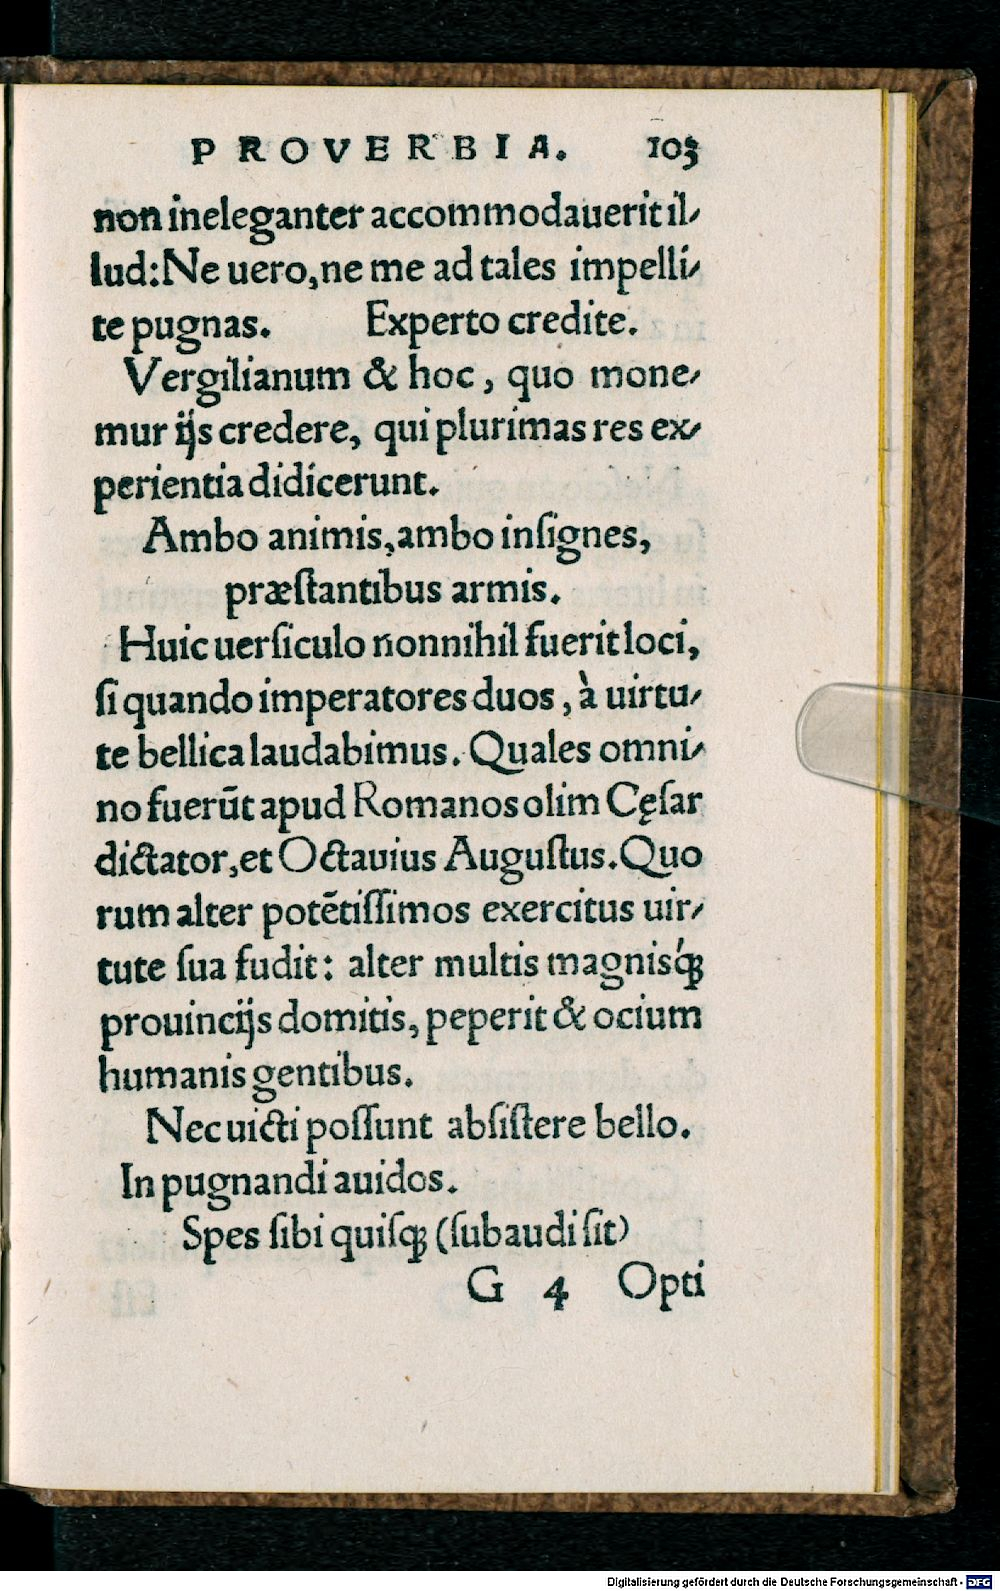 PROVERBIA. 103
non ineleganter accommodauerit il⸗
lud: Ne uero, ne me ad tales impelli⸗
te pugnas. Experto credite.
Vergilianum & hoc, quo mone⸗
mur ijs credere, qui plurimas res ex⸗
perientia didicerunt.
Ambo animis, ambo inſignes,
præſtantibus armis.
Huic uerſiculo nonnihil fuerit loci,
ſi quando imperatores duos, à uirtu⸗
te bellica laudabimus. Quales omni⸗
no fuerūt apud Romanos olim Cęſar
dictator, et Octauius Auguſtus. Quo
rum alter potẽtiſſimos exercitus uir⸗
tute ſua fudit: alter multis magnisq́ꝫ
prouincijs domitis, peperit & ocium
humanis gentibus.
Nec uicti poſſunt abſiſtere bello.
In pugnandi auidos.
Spes ſibi quiſqꝫ (ſubaudi ſit)
G 4 Opti
Digitalisierung gefördert durch die Deutsche Forschungsgemeinschaft - DFG